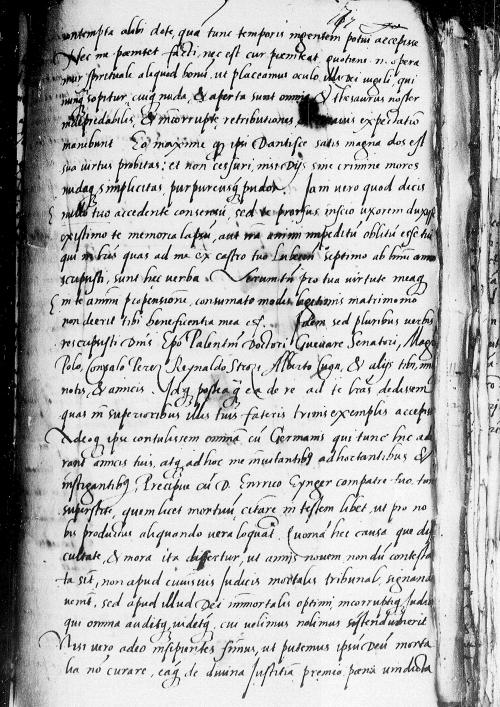 contempta alibi dote, qua tunc temporis ingentem potui accepisse
Nec me poenitet facti, nec est cur poeniteat, quotiens n. opera
mur spirituale aliquod bonum, ut placeamus oculo illi Dei vigili, qui
nunq sopitur, cuiq nuda, & aperta sunt omnia, & Thesaurus noster
indepredabilis, & incorrupte retributionis expectatio
manebunt Eo maxime q ipsi Dantisce satis magna dos est
sua virtus probitas: et non cessuri, nisi Dijs sine crimine mores
nudaq simplicitas, purpureusq pudor. Jam vero quod dicis
nullo tuo accedente consensu, sed te prorsus inscio uxorem duxisse
existimo te memoria lapsum, aut animi impeditum oblitum esse
qui in bris quas ad me ex castro tuo Lubeun septimo ab hinc anno
scripsisti, sunt hec verba Verumtn pro tua virtute meaq
in te animi propensione, consumato modis legitimis matrimonio
non deerit tibi beneficentia mea etc. Idem sed pluribus verbis
rescripsisti Dnis Epo Palentin Doctori Guevare Senatori, Magr
Polo, Gonsalo Perez Reynaldo Strozi Alberto Cugn, & alijs tibi, mi
notis, & amicis. Idq posteaq ea de re ad te bras dedissem
quas in superioribus illis tuis fateris trinis exemplis accepisse
Adeoq ipse contulissem omnia cu Germanis qui tunc hic ad
rant amicis tuis, atq adhoc me invitantibq adhortantibus &
instigantibq, Precipue cu D. Enrrico Eynger compatre tuo, tun
superstite, quem licet mortuum citare in testem libet, ut pro no
bis productus aliquando vera loquat. Quorna hec causa que dif
cultate, & mora ita differtur, ut annis novem nondu contesta
ta sit, non apud cuiusvis judicis mortalis tribunal, signanda
venit, sed apud illud Dei immortalis optimi, incorruptiq Judic
qui omnia auditq, videtq, cui velimus nolimus sistendum erit
Nisi vero adeo insipientes simus, ut putemus ipsum Deum morta
lia no curare, eaq de divina Justitia premio poena vindicta